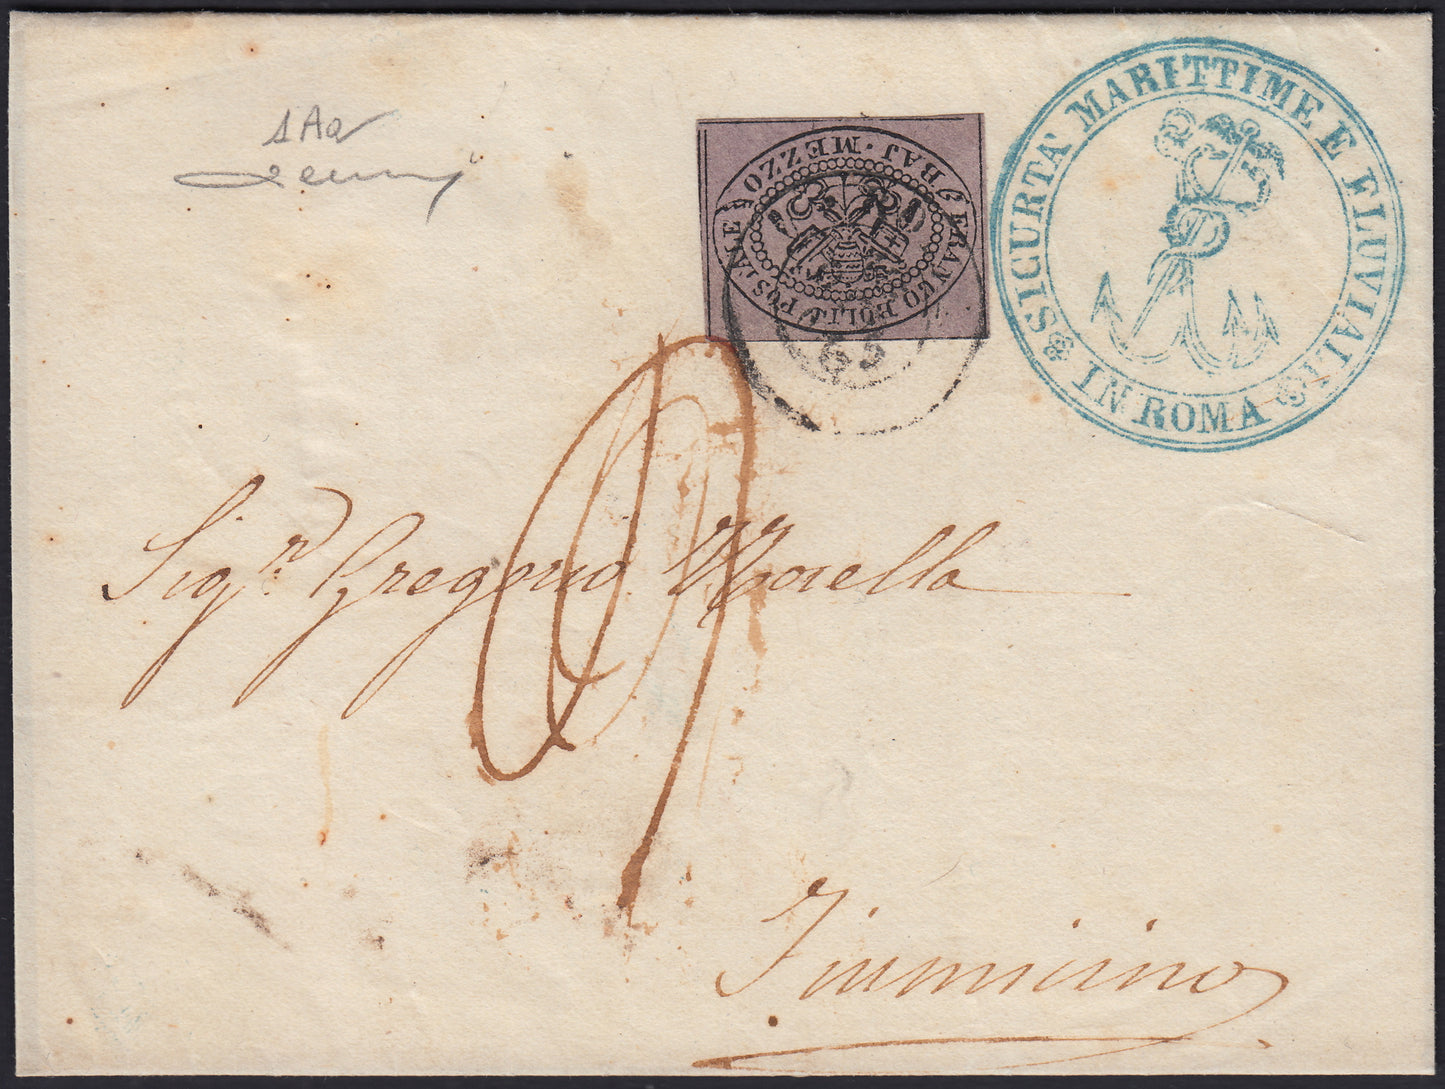 1Aa
SICURTA' MARITTIME E FLUVIALI
IN ROMA
FRANCO BOLLO POSTALE
MEZZO BAJ
65
Sig.r Gregorio Morella
Fiumicino